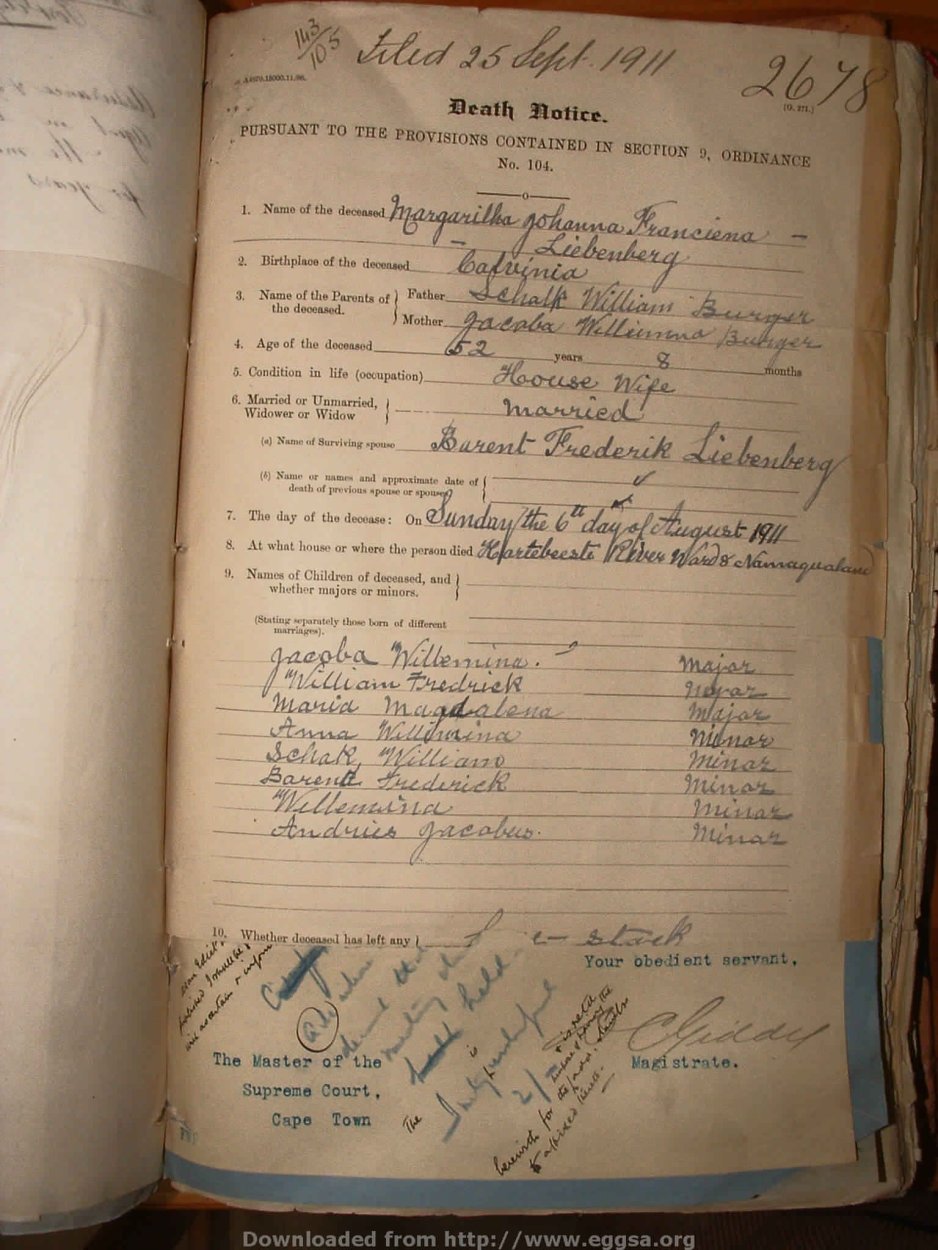 143/105 Filed 25 Sept. 1911
2678
[G. 271.]
Death Notice.
PURSUANT TO THE PROVISIONS CONTAINED IN SECTION 9, ORDINANCE
No. 104.
1. Name of the deceased Margaritha Johanna Franciena
Liebenberg
2. Birthplace of the deceased Calvinia
3. Name of the Parents of the deceased. Father Schalk William Burger
Mother Jacoba Burger
4. Age of the deceased 52 years 8 months
5. Condition in life (occupation) House Wife
6. Married or Unmarried, Widower or Widow married
(a) Name of Surviving spouse Barent Frederik Liebenberg
(b) Name or names and approximate date of
death of previous spouse or spouses
7. The day of the decease: On Sunday the 6th day of August 1911
8. At what house or where the person died Hartebeeste River Ward 8 Namaqualand
9. Names of Children of deceased, and
whether majors or minors.
(Stating separately those born of different
marriages).
Jacoba Willemina. Major
William Fredrick
Maria Magdalena Major
Anna Willemina Minor
Schalk William Minor
Barent Frederick Minor
Willemina Minor
Andries Jacobus. Minor
10. Whether deceased has left any stock
Your obedient servant,
Magistrate.
The Master of the
Supreme Court,
Cape Town
The
is
Downloaded from http://www.eggsa.org